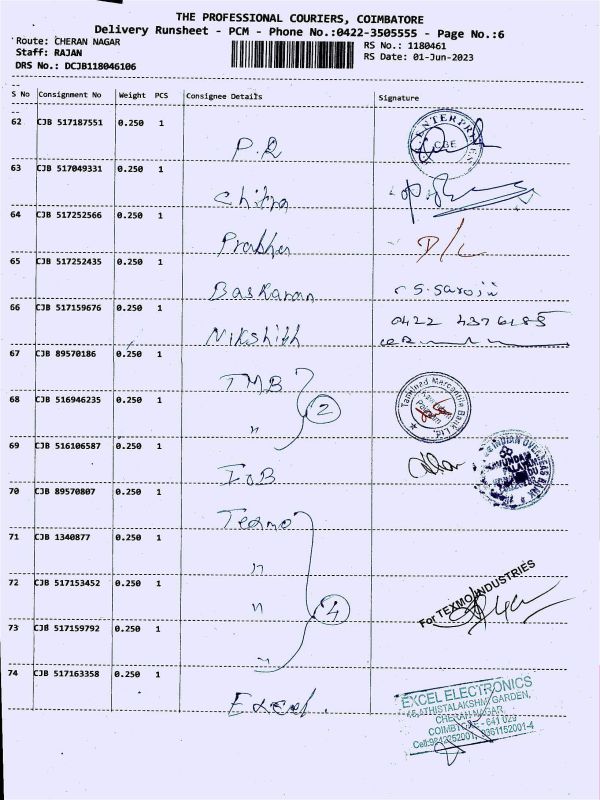 THE PROFESSIONAL COURIERS, COIMBATORE
Delivery Runsheet - PCM - Phone No.:0422-3505555 - Page No.:6
Route: CHERAN NAGAR
Staff: RAJAN
DRS No.: DCJB118046106
RS No.: 1180461
RS Date: 01-Jun-2023
S No Consignment No Weight PCS Consignee Details Signature
62 CJB 517187551 0.250 1 P.R ENTERPRISES CBE
63 CJB 517049331 0.250 1 Chitra
64 CJB 517252566 0.250 1 D/L
65 CJB 517252435 0.250 1 Baskaran S. Saroja
66 CJB 517159676 0.250 1 Nikshith 0422 4376185
67 CJB 89570186 0.250 1 TMB
68 CJB 516946235 0.250 1 " 2 Tamilnad Mercantile Bank Ltd.
69 CJB 516106587 0.250 1 IOB INDIAN OVERSEAS BANK
70 CJB 89570807 0.250 1 Texmo
71 CJB 1340877 0.250 1 "
72 CJB 517153452 0.250 1 " 4 For TEXMO INDUSTRIES
73 CJB 517159792 0.250 1 "
74 CJB 517163358 0.250 1 Excel.
EXCEL ELECTRONICS
ATHISTALAKSHMI GARDEN,
CHERAN NAGAR,
COIMBTORE - 641 029